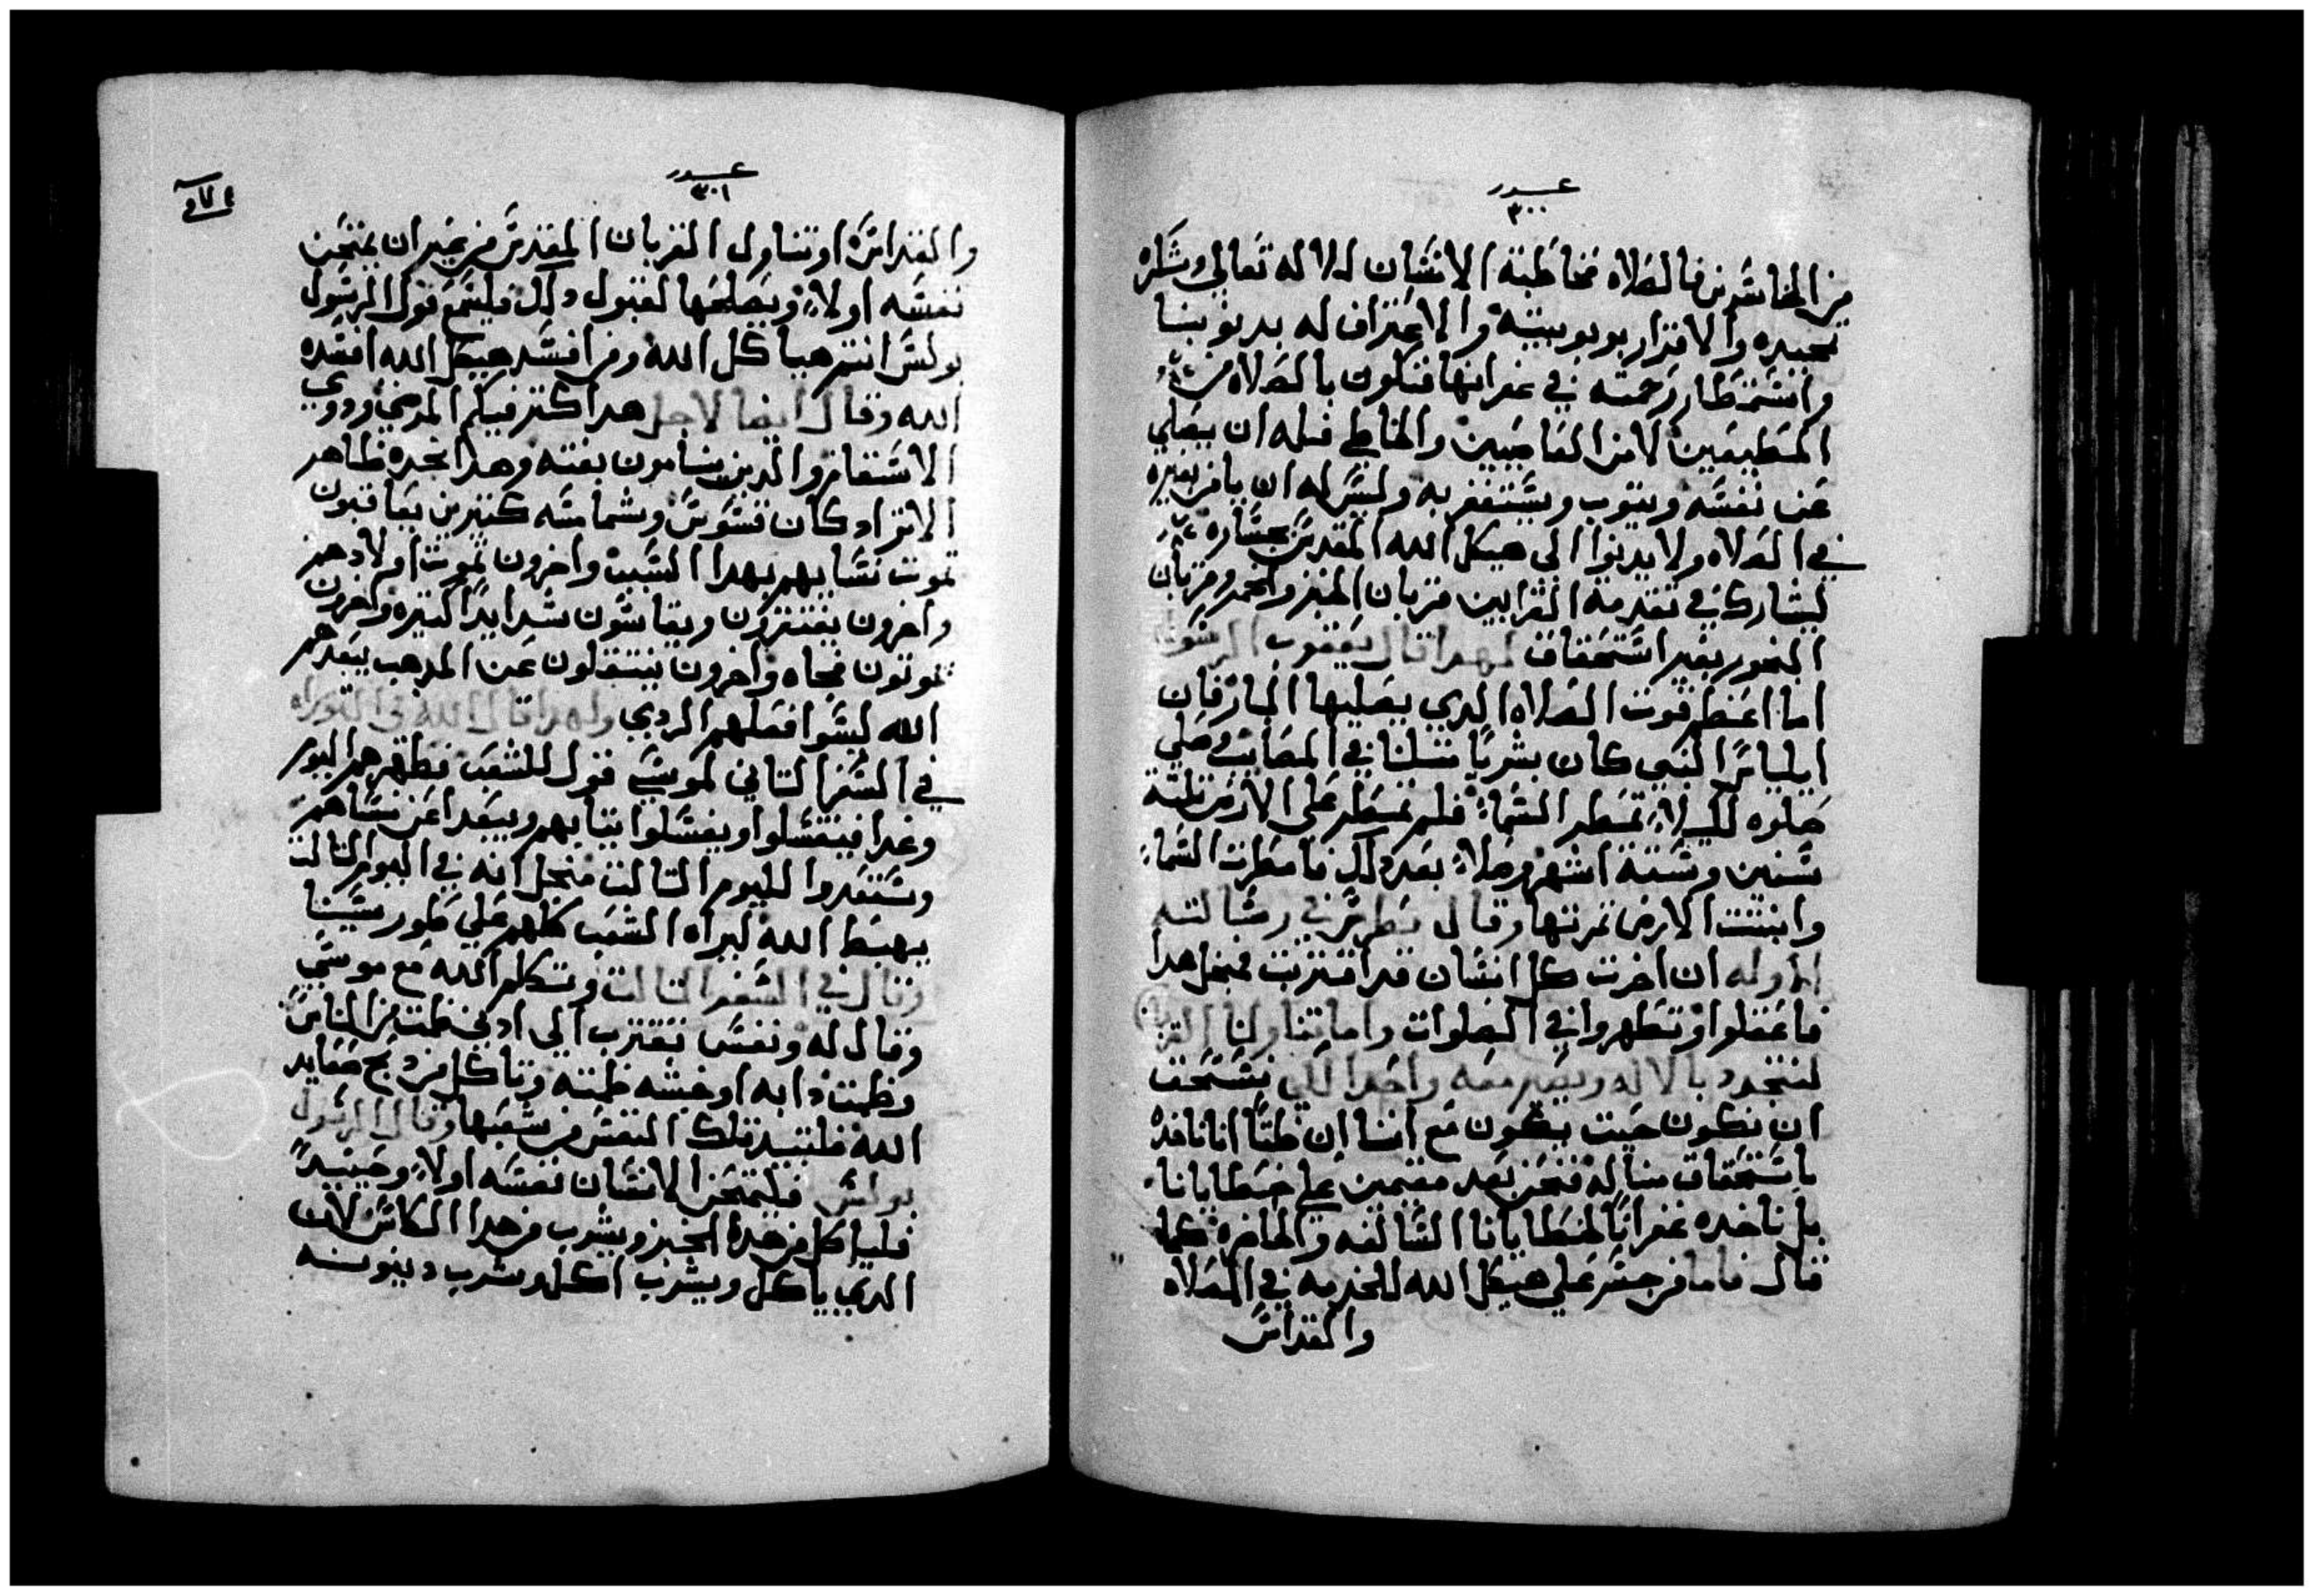 عدد
٣٠٠
من الخاسرين فالصلاه مخاطبة الانسان للاله تعالي وشكره
تمجيده والاقرار بربوبيته والاعتراف له بدنوبنا
واستمطار رحمته في غفرانها فتكون بالصلاه من
المطيعين لا من الغاضبين والخاطي فله ان يصلي
عن نفسه ويتوب ويستغفر به وليس له ان يامن بغيره
في الصلاه ولا يدنوا الي هيكل الله المقدس بجساره
ليشارك في تقدمة القرابين قربان الخبز والخمر وقربان
البخور بغير استحقاق لهدا قال يعقوب الرسول
اما اعظم قوت الصلاه الدي يصليها البار فان
ايلياس النبي كان بشريا متلنا في المصايب وصلي
صلوه لكيلا تمطر السما فلم تمطر علي الارض تلتة
سنين وستة اشهر وصلا بعد دلك فامطرت السما
وانبتت الارض تمرتها وقال بطرس في رسالته
الاوله ان اخرت كل انسان قد اقتربت فمجل هدا
فاعقلوا وتطهروا في الصلوات واما تناولنا القربان
لنتحد بالاله ونصير معه واحدا لكي نستحق
ان نكون حيت يكون مع امنا ان ظنا انا ناخده
باستحقاق منا له فنحن بعد مقيمين علي خطايانا
بل ناخده غفرانا لخطايانا السالفه والحاضره كما
قال فاما من جسر علي هيكل الله للخدمه في الصلاه
والقداس
عدد
٣٠١
والقداس او تناول القربان المقدس من غير ان يمتحن
نفسه اولا ويصلحها لقبول دلك فليسمع قول الرسول
بولس انتم هياكل الله ومن افسد هيكل الله افسده
الله وقال ايضا لاجل هدا كتر فيكم المرضي ودوي
الاسقام والدين ينامون بغته وهدا نجده ظاهر
الانراد كان قسوس وشمامسه كتيرين يعاقبون
تموت نسايهم بهدا السبب واخرون تموت اولادهم
واخرون يفتقرون ويقاسون شدايدا كتيره واخرون
تموتون فجاه واخرون ينتقلون عن المدهب يبعدهم
الله لسوا فعلهم الردي ولهدا قال الله في التوراه
في السفر التاني لموسي قول للشعب تطهرهم اليوم
وغدا فيتغسلوا ويغسلوا تيابهم ويبعدا عن نساهم
وستعدوا لليوم التالت منجل انه في اليوم التالت
يهبط الله ليراه الشعب كلهم علي طور سينا
وقال في السفر التالت وتكلم الله مع موسي
وقال له ونفس تقترب الي ادني ظمت من الناس
وظمت دابه او خبشه ظمته وتاكل من دبح صفايد
الله فلتبيد تلك النفس من شعبها وقال الرسول
بولس فليمتحن الانسان نفسه اولا وحينيد
فلياكل من هدا الخبز ويشرب من هدا الكاس لان
الدي ياكل ويشرب اكل وشرب دينونه